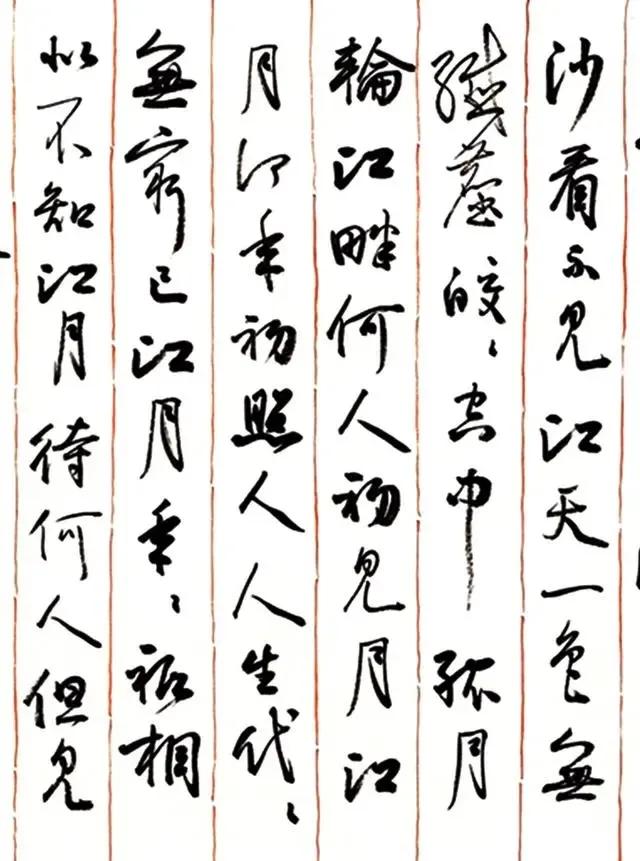 沙看不見江天一色無
纖塵皎〻空中孤月
輪江畔何人初見月江
月何年初照人人生代〻
無窮已江月年〻祗相
似不知江月待何人但見